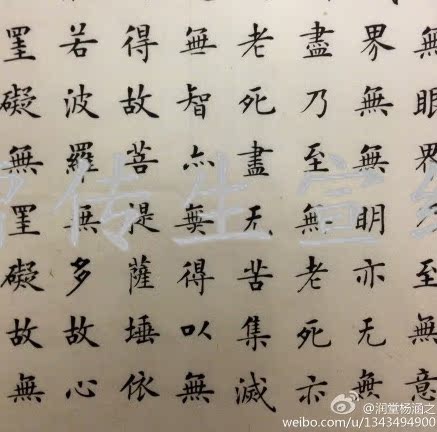 無眼界乃至無意
界無無明亦无無
盡乃至無老死亦
老死盡无苦集滅
無智亦無得以無
得故菩提薩埵依
若波羅多故心
罣礙無罣礙故無
传生宣
@润堂杨涵之
weibo.com/u/1343494900